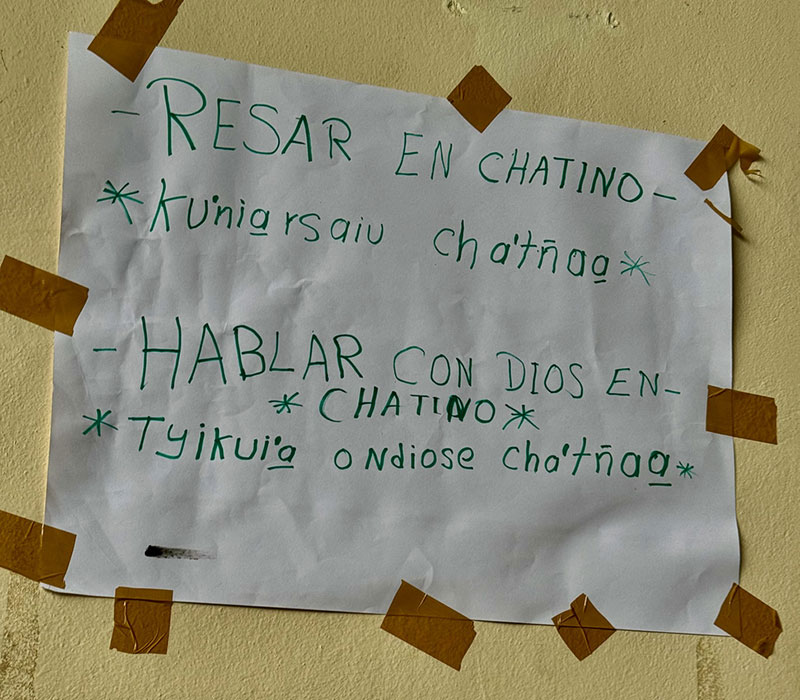 - RESAR EN CHATINO -
* Ku'nia̲ rsaiu cha'tñaa̲ *
- HABLAR CON DIOS EN -
* CHATINO *
* Tyikui'a̲ o Ndiose cha'tñaa̲ *